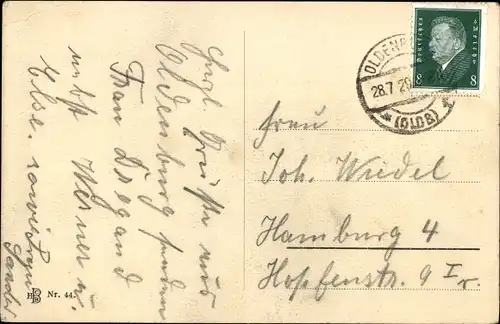 Hzgl. Grüße aus
Oldenburg senden
Frau Dregand
nebst Werner u.
Else.
Nr. 44.
Deutsches Reich
8 8
OLDENB
28.7.29
(OLDB)
Frau
Joh. Wiedel
Hamburg 4
Hopfenstr. 9 I r.